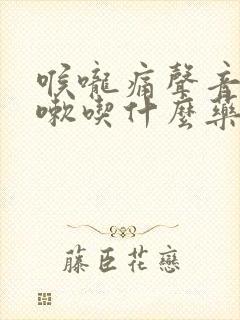 喉嚨痛聲音
嗽喫什麼藥
藤臣花戀